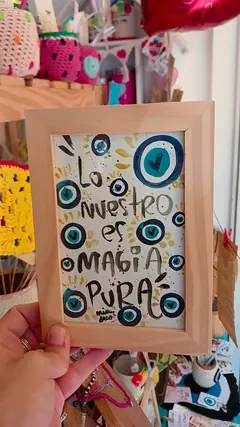 Lo
NUESTRO
ES
MAGIA
PURA